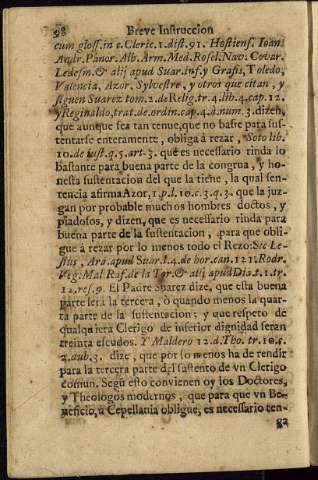 98 Breve Instruccion
cum gloss. in c. Cleric. 1. dist. 91. Hostiens. Ioan.
Andr. Panor. Alb. Arm. Med. Rosel. Nav. Covar.
Ledesm. & alij apud Suar. inf. y Grafis, Toledo,
Valencia, Azor, Sylvestre, y otros que citan, y
siguen Suarez tom. 2. de Relig. tr. 4. lib. 4. cap. 12.
y Reginaldo, trat. de ordin. cap. 4. à num. 3. dizen,
que aunque sea tan tenue, que no baste para sus-
tentarse enteramente, obliga à rezar, Soto lib.
10. de iust. q. 5. art. 3. que es necessario rinda lo
bastante para buena parte de la congrua, y ho-
nesta sustentacion del que la tiene, la qual sen-
tencia afirma Azor, 1. p. l. 10. c. 3. q. 3. que la juz-
gan por probable muchos hombres doctos, y
piadosos, y dizen, que es necessario rinda para
buena parte de la sustentacion, para que obli-
gue à rezar por lo menos todo el Rezo: Sic Le-
ssius, Ara. apud Suar. l. 4. de hor. can. 121. Rodr.
Veg. Mal. Raf. de la Tor. & alij apud Dia. t. 1. tr.
12. res. 9. El Padre Suarez dize, que esta buena
parte sera la tercera, ò quando menos la quar-
ta parte de la sustentacion; y que respeto de
qualquiera Clerigo de inferior dignidad seran
treinta escudos. Y Maldero 12. d. Tho. tr. 10. c.
2. dub. 3. dize, que por lo menos ha de rendir
para la tercera parte del sustento de vn Clerigo
comun. Segũ esto convienen oy los Doctores,
y Theologos modernos, que para que vn Be-
neficio, ù Cepellania obligue, es necessario ten-
ga